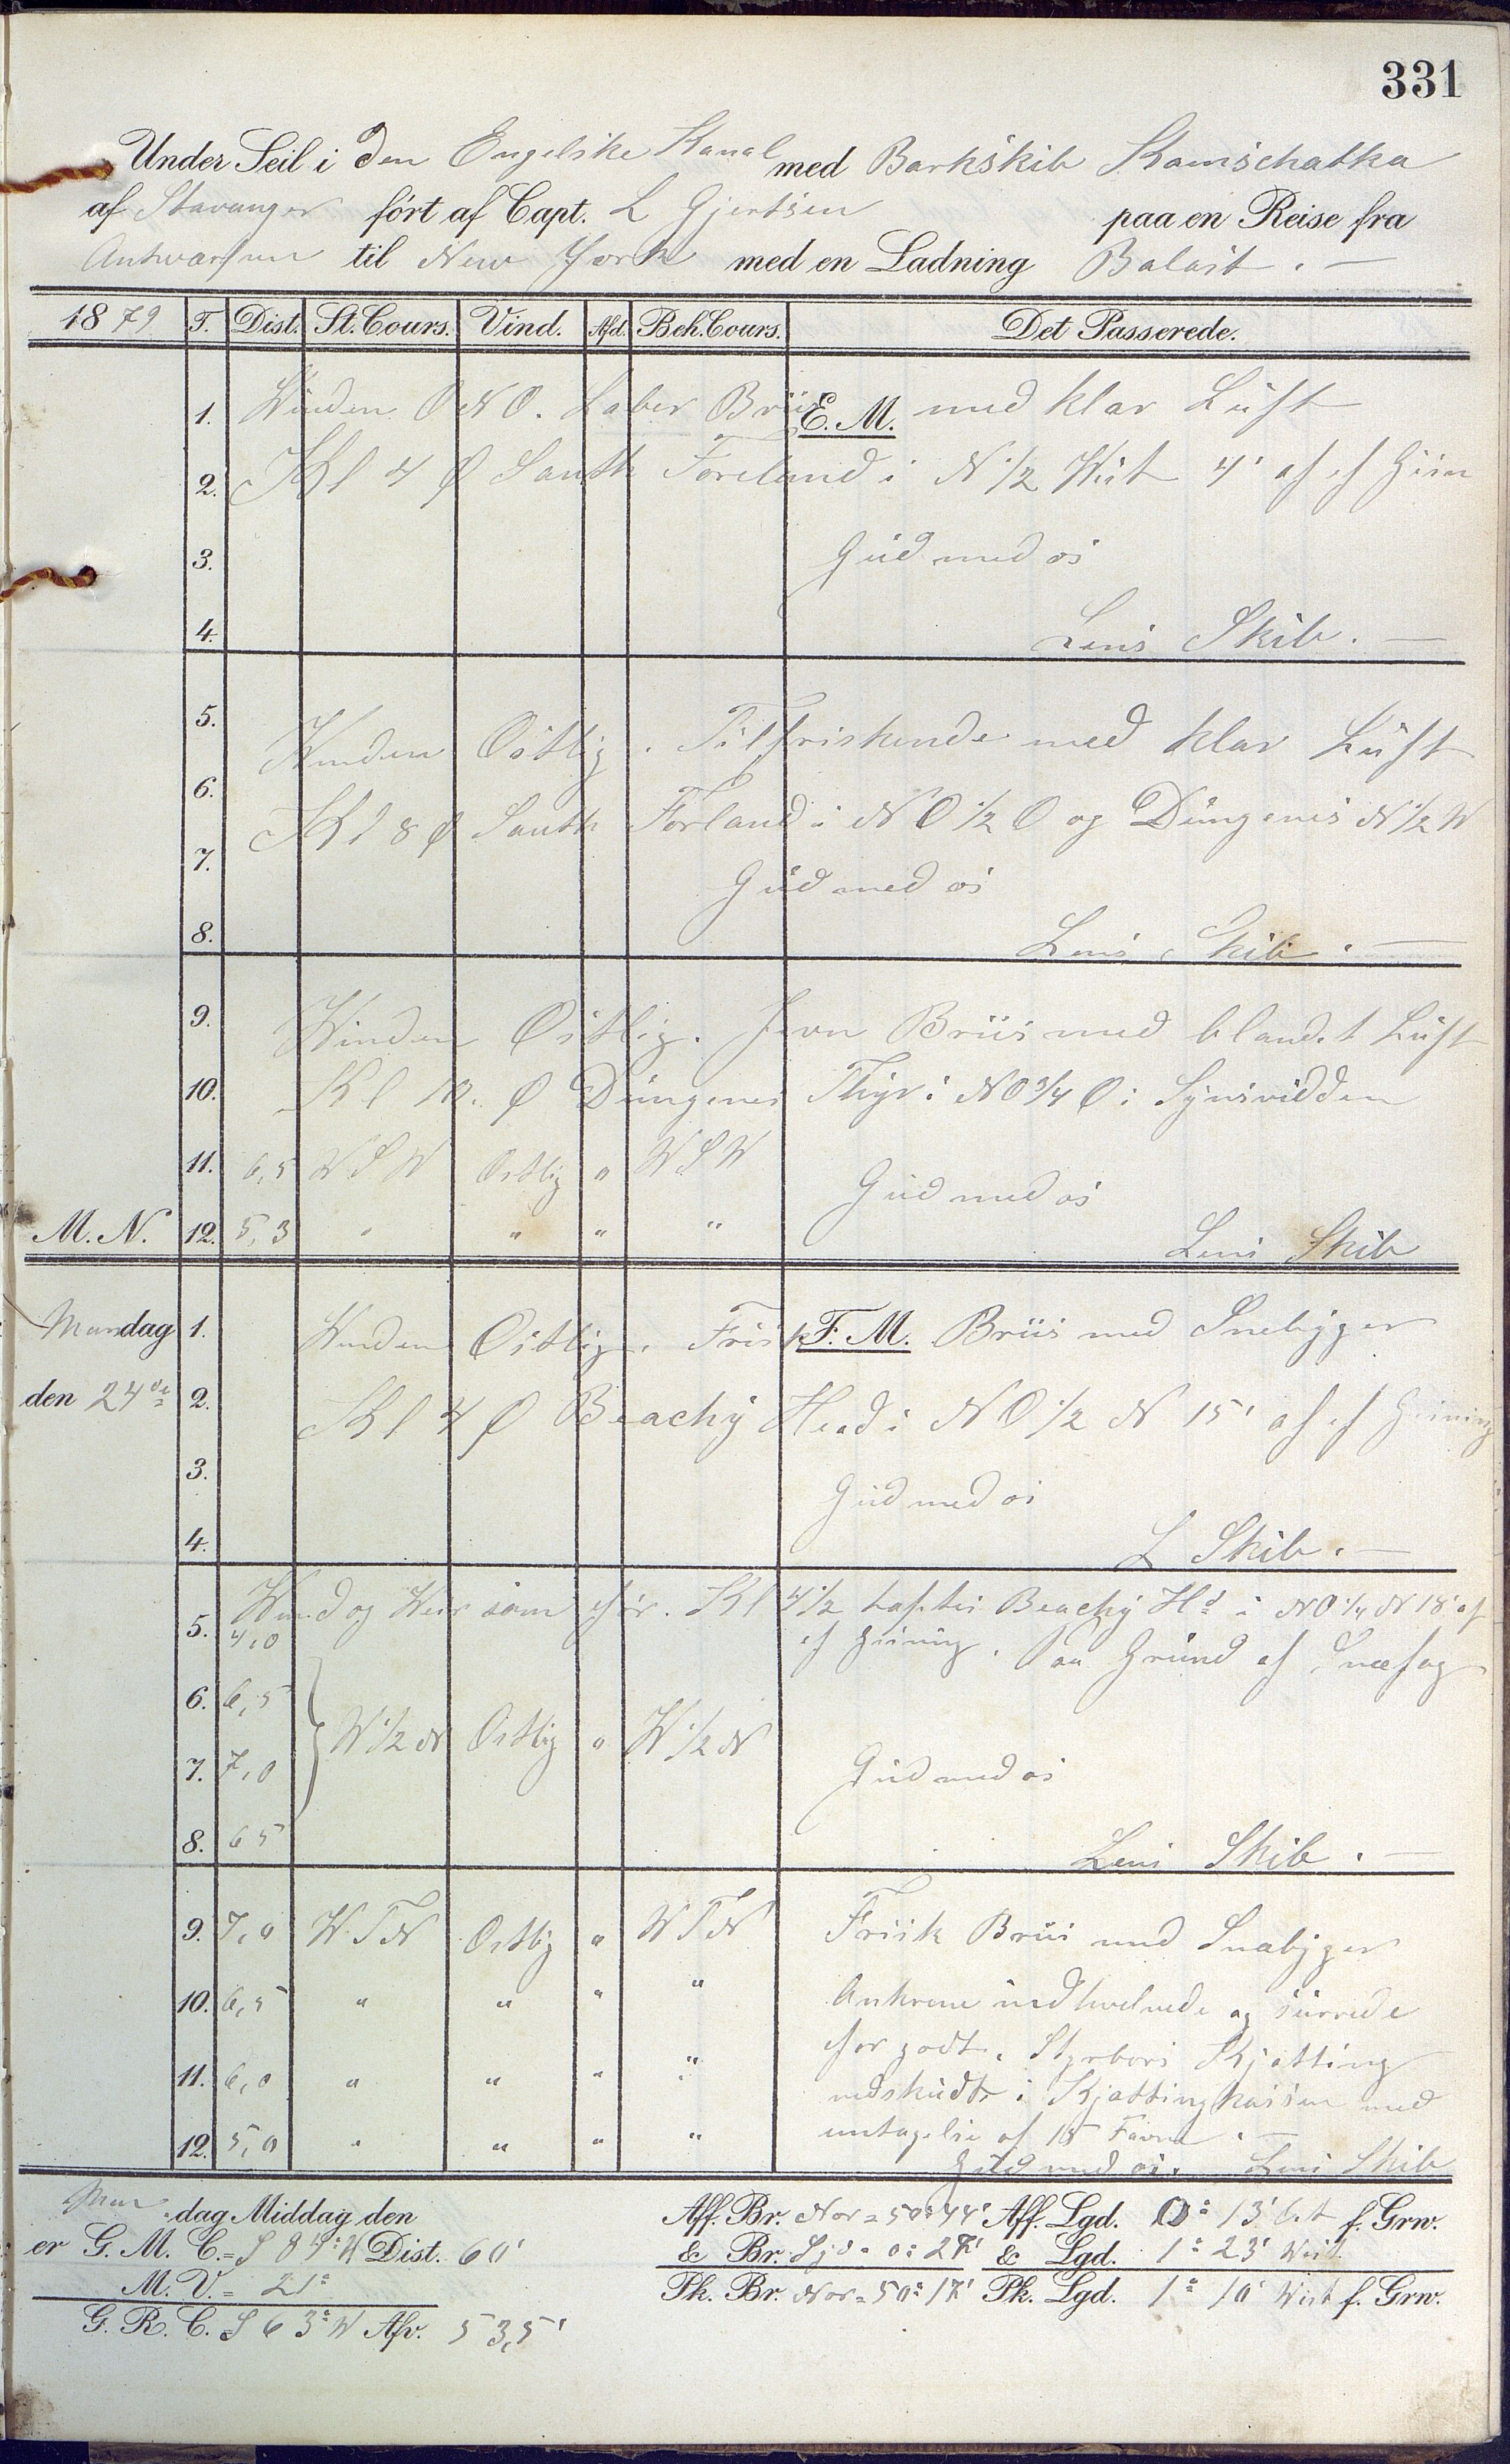 331
Under Seil i Den Engelske Kanal med Barkskib Kamschatka
af Stavanger ført af Capt. L Gjertsen paa en Reise fra
Antwarpen til New York med en Ladning Balast. —
1879 T. Dist. St. Cours. Vind. Afd. Beh. Cours. Det Passerede.
1. Winden ONO. Laber Briis E. M. med klar Luft
2. Kl 4 P South Foreland i N 1/2 West 4' af
3. Gud med os
4. Lens Skib. —
5. Winden Ostlig. Tilfriskende med klar Luft
6. Kl 8 P South Forland i NO 1/2 O og Dungenes N 1/2 W
7. Gud med os
8. Lens Skib. —
9. Winden Ostlig. Jevn Briis med blandet Luft
10. Kl 10. P Dungenes Fhyr i NO 3/4 O i Synsvidden
11. 6,5 WSW Ostlig " WSW Gud med os
M. N. 12. 5,3 " " " " Lens Skib
Mandag 1. Winden Ostlig. Frisk F. M. Briis med Snebyger
den 24de 2. Kl 4 P Beachy Head i NO 1/2 N 15' af
3. Gud med os
4. L Skib. —
5. Wind og Veir som før. Kl 4 1/2 Beachy Hd i NO 1/4 N 18' af
4,0 Paa Grund af
6. 6,5
7. 7,0 W 1/2 N Ostlig " W 1/2 N Gud med os
8. 6 5 Lens Skib. —
9. 7,0 W.T.N Ostlig " W T N Frisk Briis med Snebyger
10. 6,5 " " " " Ankrene og surrede
for godt. Styrbors Kjætting
11. 6,0 " " " " i Kjættingkassen med
12. 5,0 " " " " untagelse af 15 Favne. —
Gud med os. Lens Skib
Man dag Middag den Aff. Br. Nor = 50° 44' Aff. Lgd. 0° 13' Ost f. Grw.
er G. M. C. = S 84° W Dist. 60' & Br. Syd = 0° 27' & Lgd. 1° 23' West
M. V. = 21° Pk. Br. Nor = 50° 17' Pk. Lgd. 1° 10' West f. Grw.
G. R. C. S 63° W Afv. 53,5'